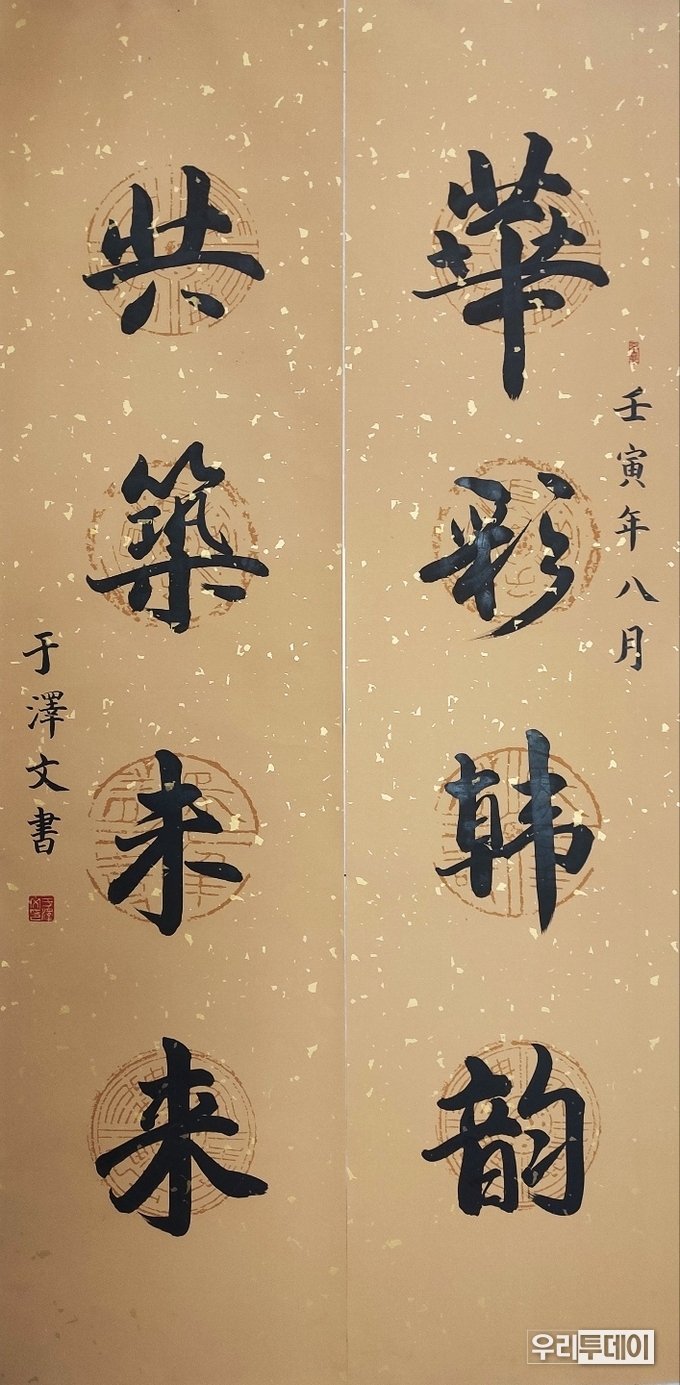 壬寅年八月
華彩韩韵
共築未来
于澤文書
우리투데이